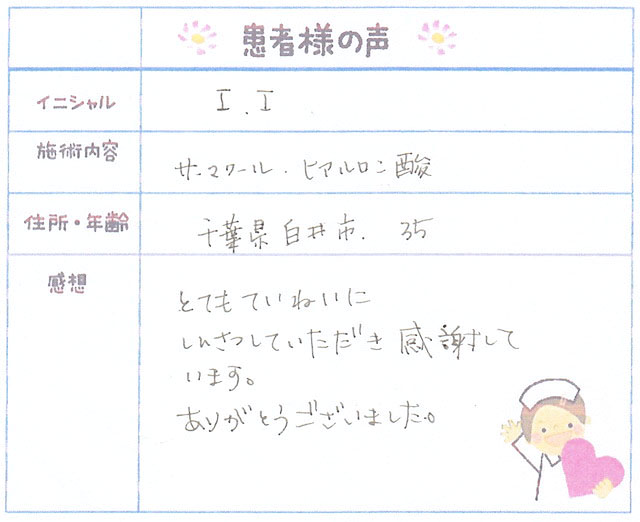 患者様の声
イニシャル I.I
施術内容 サーマクール・ヒアルロン酸
住所・年齢 千葉県白井市. 35
感想 とてもていねいに
しんさつしていただき感謝して
います。
ありがとうございました。